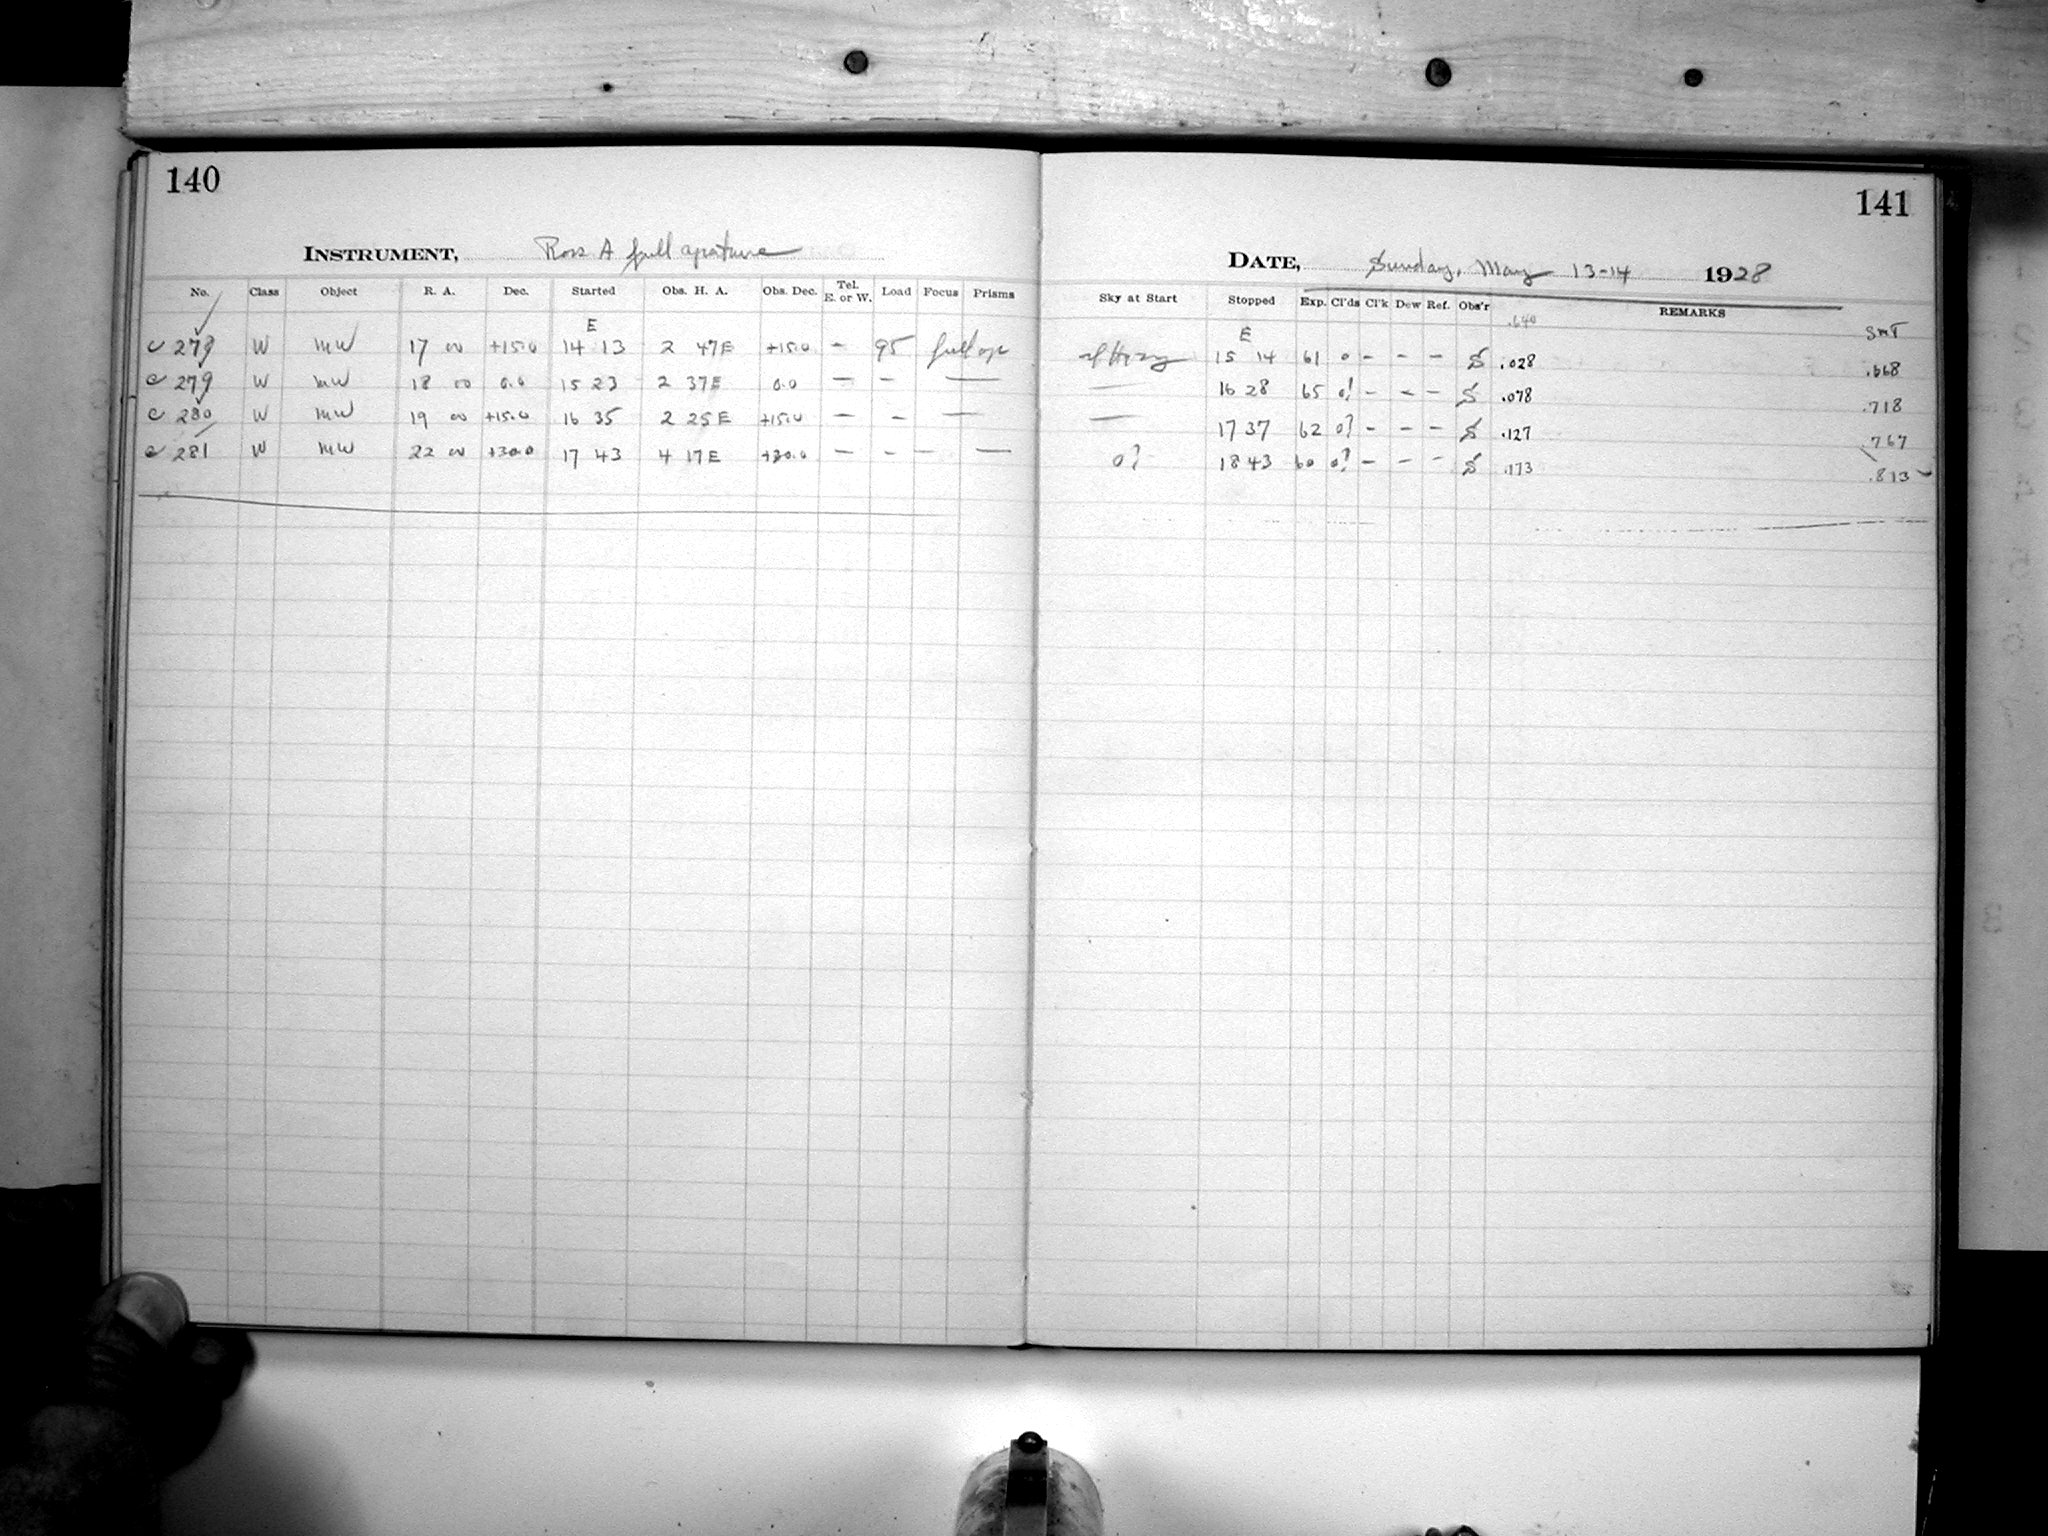 140
INSTRUMENT, Ross A full aperture
No. Class Object R. A. Dec. Started Obs. H. A. Obs. Dec. Tel. E. or W. Load Focus Prisms
E
279 W MW 17 00 +15.0 14 13 2 47E +15.0 — 95 full ap
279 W MW 18 00 0.0 15 23 2 37E 0.0 — — —
280 W MW 19 00 +15.0 16 35 2 25E +15.0 — — —
281 W MW 22 00 +30.0 17 43 4 17E +30.0 — — — —
141
DATE, Sunday, May 13-14 1928
Sky at Start Stopped Exp. Cl'ds Cl'k Dew Ref. Obs'r REMARKS
.640
E SMT
Hazy 15 14 61 0 — — — S .028 .668
— 16 28 65 0! — — — S .078 .718
— 17 37 62 0? — — — S .127 .767
0? 18 43 60 0? — — — S .173 .813